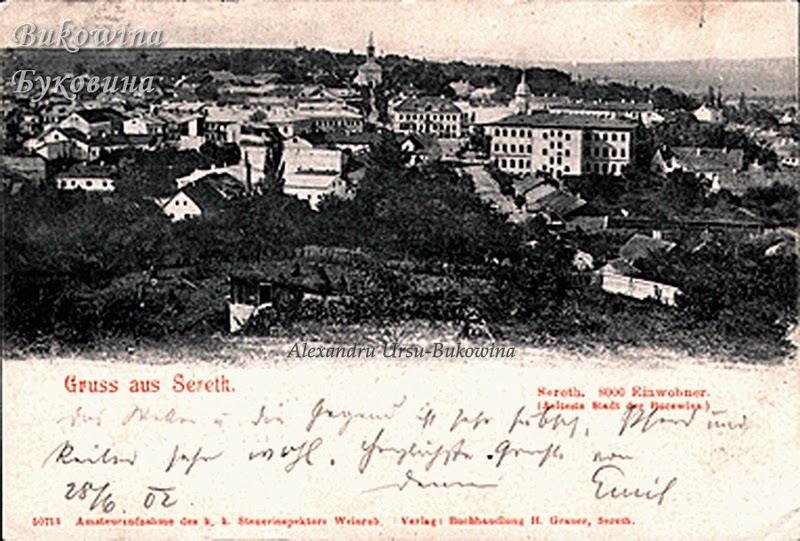 Bukowina
Буковина
Alexandru Ursu-Bukowina
Gruss aus Sereth.
Sereth. 8000 Einwohner.
(Aelteste Stadt der Bucowina.)
das Wetter u die Gegend ist sehr hübsch, Pferd und
Reiter sehr wohl. Herzlichste Grüße von
28/6. 02. Emil
Amateuraufnahme des k. k. Steuerinspektors Weinreb. Verlag: Buchhandlung H. Gruner, Sereth.